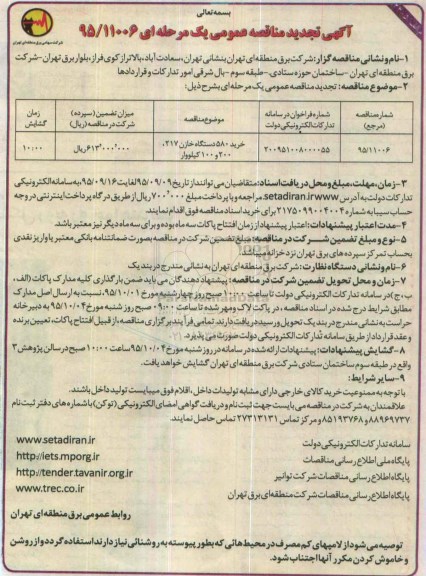 بسمه تعالی
آگهی تجدید مناقصه عمومی یک مرحله ای ۹۵/۱۱۰۰۶
شرکت سهامی برق منطقه ای تهران
۱-نام ونشانی مناقصه گزار: شرکت برق منطقه ای تهران بنشانی تهران،سعادت آباد،بالاتر از کوی فراز،بلوار برق تهران-شرکت
برق منطقه ای تهران -ساختمان حوزه ستادی-طبقه سوم -بال شرقی امور تدارکات و قراردادها
۲-موضوع مناقصه: تجدید مناقصه عمومی یک مرحله ای بشرح ذیل:
شماره مناقصه (مرجع) شماره فراخوان در سامانه تدارکات الکترونیکی دولت موضوع مناقصه مبلغ تضمین (سپرده) شرکت در مناقصه (ریال) زمان گشایش
۹۵/۱۱۰۰۶ ۲۰۰۹۵۱۰۰۸۰۰۰۰۵۵ خرید ۵۸۰ دستگاه خازن ۲۱۷، ۲۰۰ و ۱۰۰ کیلووار ۶۱۳٬۰۰۰٬۰۰۰ ریال ۱۰:۰۰
۳-زمان، مهلت، مبلغ و محل دریافت اسناد: متقاضیان می توانند از تاریخ ۹۵/۰۹/۰۹ لغایت ۹۵/۰۹/۱۶، به سامانه الکترونیکی
تدارکات دولت به آدرس setadiran.ir www. مراجعه و با پرداخت مبلغ ۷۰۰٬۰۰۰ ریال از طریق درگاه پرداخت اینترنتی در وجه
حساب سیبا به شماره ۲۱۷۵۰۹۹۰۰۴۰۰۴ برای خرید اسناد مناقصه فوق اقدام نمایند.
۴-مدت اعتبار پیشنهادات: اعتبار پیشنهاد از زمان افتتاح پاکات سه ماه بوده و برای سه ماه دیگر نیز معتبر باشد.
۵-نوع و مبلغ تضمین شرکت در مناقصه: مبلغ تضمین شرکت در مناقصه بصورت ضمانتنامه بانکی معتبر یا واریز نقدی
بحساب تمرکز سپرده های برق تهران نزد خزانه میباشد.
۶-نام و نشانی دستگاه نظارت: شرکت برق منطقه ای تهران به نشانی مندرج در بند یک
۷-زمان و محل تحویل تضمین شرکت در مناقصه: پیشنهاد دهندگان می باید ضمن بارگذاری کلیه مدارک پاکات (الف،
ب، ج) در سامانه تدارکات الکترونیکی دولت تا ساعت ۱۰:۰۰ صبح روز چهارشنبه مورخ ۹۵/۱۰/۰۱، نسبت به ارسال اصل مدارک
مطابق شرایط درج شده در اسناد مناقصه، در پاکت لاک و مهر شده تا ساعت ۰۹:۰۰ صبح روز شنبه مورخ ۹۵/۱۰/۰۴ به دبیر خانه
حراست به نشانی مندرج در بند یک تحویل و رسید دریافت دارند. تمامی فرآیند برگزاری مناقصه از قبیل افتتاح پاکات، تعیین برنده
و عقد قرارداد از طریق سامانه تدارکات الکترونیکی دولت صورت می پذیرد.
۸-گشایش پیشنهادات: پیشنهادات ارائه شده در سامانه در روز شنبه مورخ ۹۵/۱۰/۰۴ ساعت ۱۰:۰۰ صبح در سالن پژوهش ۳
واقع در طبقه سوم ساختمان ستادی شرکت برق منطقه ای تهران گشایش خواهد یافت.
۹-سایر شرایط:
با توجه به ممنوعیت خرید کالای خارجی دارای مشابه تولیدات داخل، اقلام فوق میبایست تولید داخل باشند.
علاقمندان به شرکت در مناقصه می بایست جهت ثبت نام و دریافت گواهی امضای الکترونیکی (توکن) با شماره های دفتر ثبت نام
۸۸۹۶۹۷۳۷ و ۸۵۱۹۳۷۶۸ و مرکز تماس ۲۷۳۱۳۱۳۱ تماس حاصل نمایند.
سامانه تدارکات الکترونیکی دولت www.setadiran.ir
پایگاه ملی اطلاع رسانی مناقصات http://iets.mporg.ir
پایگاه اطلاع رسانی مناقصات شرکت توانیر http://tender.tavanir.org.ir
پایگاه اطلاع رسانی مناقصات شرکت منطقه ای برق تهران www.trec.co.ir
روابط عمومی برق منطقه ای تهران
توصیه می شود از لامپهای کم مصرف در محیط هائی که بطور پیوسته به روشنائی نیاز دارند استفاده گردد و از روشن
و خاموش کردن مکرر آنها اجتناب شود.